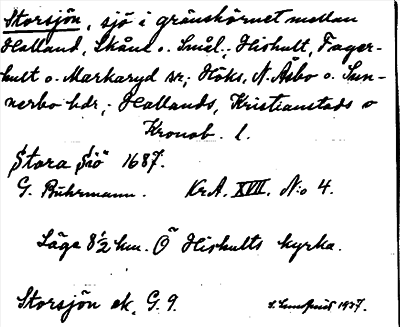 Storsjön, sjö i gränshörnet mellan
Halland, Skåne o. Smål.; Hishult, Fager-
hult o. Markaryd sr; Höks, N. Åsbo o. Sun-
nerbo hdr; Hallands, Kristianstads o
Kronob. l.
Stora Siö 1687.
G. Buhrmann. Kr.A. XVII. N:o 4.
Läge 8 1/2 km. Ö Hishults kyrka.
Storsjön ek. G. 9.
1937.